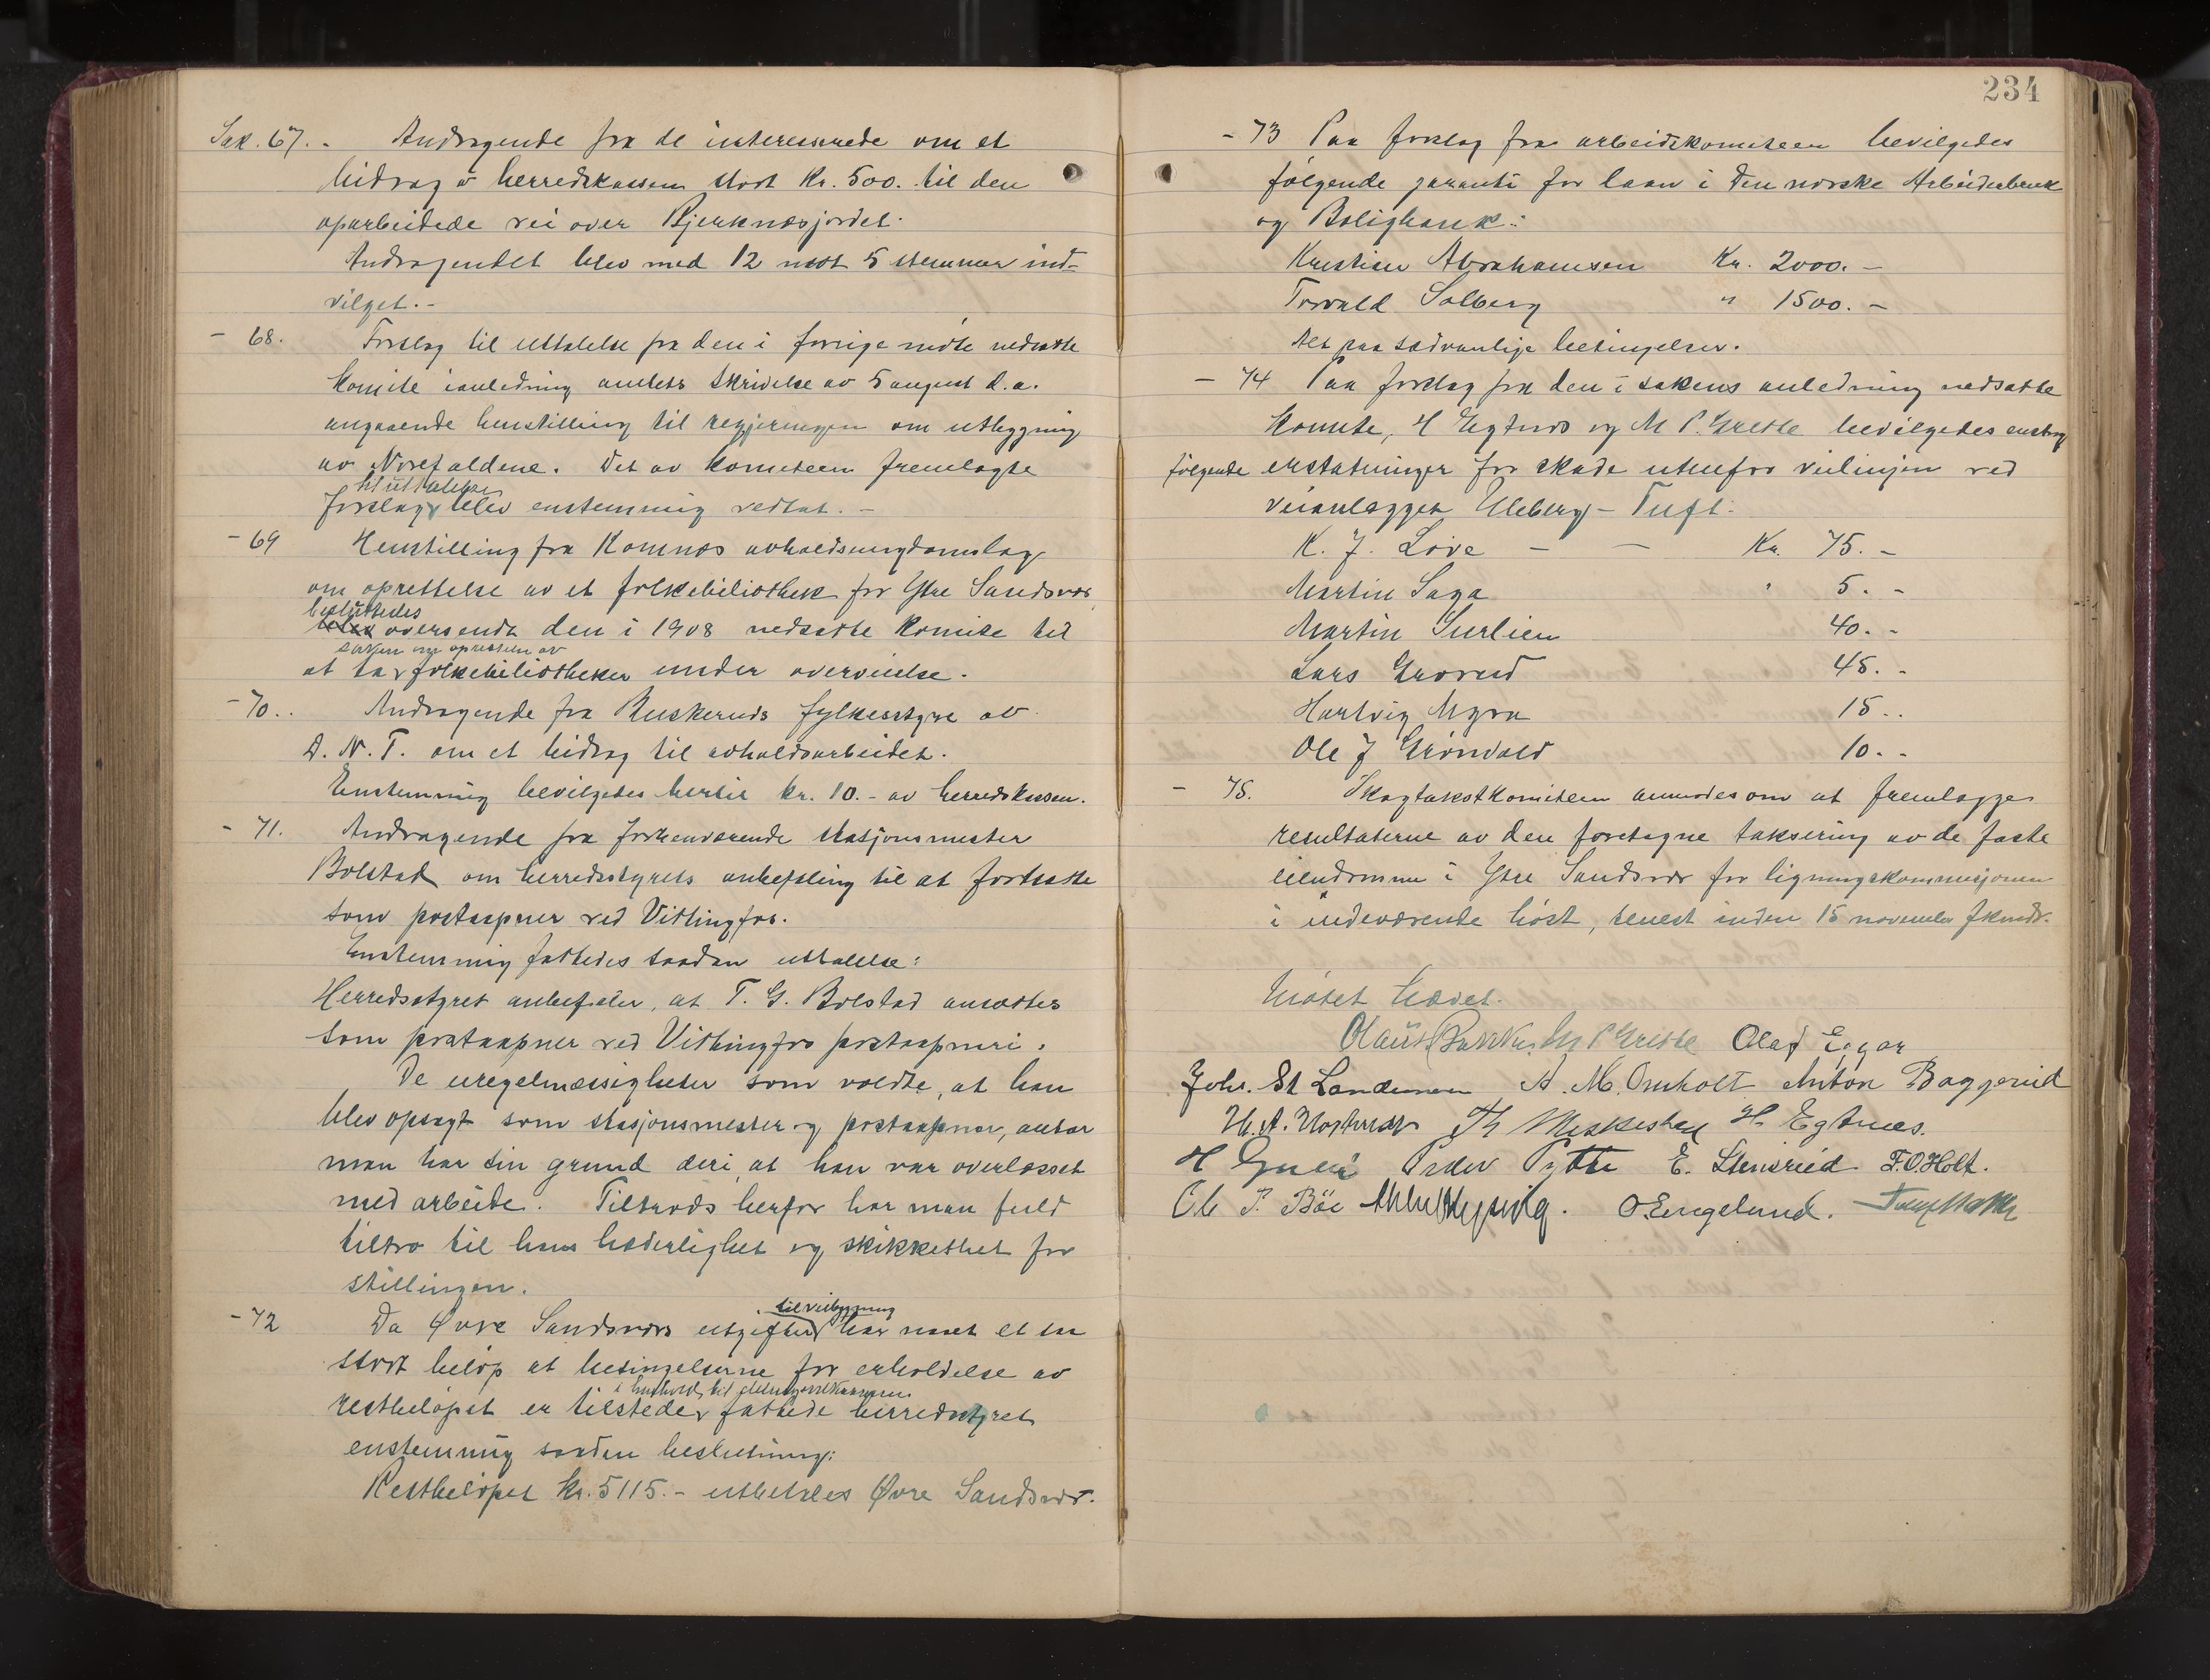 Sak. 67. - Andragende fra de interesserede om et
bidrag av herredskassen stort Kr. 500. til den
oparbeidede vei over Bjerknæsjordet.
Andragendet blev med 12 mot 5 stemmer ind-
vilget. -
- 68. Forslag til uttalelse fra den i forrige møte nedsatte
komite i anledning amtets skrivelse av 5 august d.a.
angaaende henstilling til regjeringen om utbygging
av Norefaldene. Det av komiteen fremlagte
til uttalelse
forslag v blev enstemmig vedtat. -
- 69 Henstilling fra Komnæs avholdsungdomslag
om oprettelse av et folkebibliothek for Ytre Sandsvær,
besluttedes
blev oversendt den i 1908 nedsatte komite til
saken om oprettelse av
at ta v folkebibliotheker under overveielse.
- 70.. Andragende fra Buskeruds fylkesstyre av
D. N. T. om et bidrag til avholdsarbeidet.
Enstemmig bevilgedes hertil kr. 10.- av herredskassen.
- 71. Andragende fra forhenværende stasjonsmester
Bolstad om herredsstyrets anbefaling til at fortsætte
som postaapner ved Vittingfos.
Enstemmig fattedes saadan uttalelse:
Herredsstyret anbefaler, at T. G. Bolstad ansættes
som postaapner ved Vittingfos postaapneri.
De uregelmæssigheter som voldte, at han
blev opsagt som stasjonsmester og postaapner, antar
man har sin grund deri, at han var overlæsset
med arbeide. Tiltrods herfor har man fuld
tiltro til hans hæderlighet og skikkethet for
stillingen.
til veibygging
- 72 Da Øvre Sandsværs utgifter har naaet et saa
stort beløp at betingelserne for erholdelse av
i henhold til delingsoverenskomsten
restbeløpet er tilstede v fattede herredsstyret
enstemmig saadan beslutning:
Restbeløpet kr. 5115.- utbetales Øvre Sandsvær.
234
- 73 Paa forslag fra arbeidskomiteen bevilgedes
følgende garanti for laan i Den norske Arbeiderbruk
og Boligbank:
Kristian Abrahamsen Kr. 2000. -
Torvald Solberg " 1500. -
Alt paa sædvanlige betingelser.
- 74 Paa forslag fra den i sakens anledning nedsatte
komite, H Egtnæs og M P. Grette bevilgedes enstg
følgende erstatninger for skade utenfor veilinjen ved
veianlægget Uleberg - Tuft:
K. J. Løve - - Kr. 75. -
Martin Saga " 5. -
Martin Surlien 40. -
Lars Grorud 45. -
Hartvig Myra 15..
Ole J Grønvold 10. -
- 75. Skogtakstkomiteen anmodes om at fremlægge
resultaterne av den foretagne taksering av de faste
eiendomme i Ytre Sandsvær for ligningskommisjonen
i indeværende høst, senest inden 15 november fkmdr.
Møtet hævet.
Olaus Bakke. M P Grette Olaf Eggar
Joh. St Landsmen A. M. Omholt Anton Baggerud
H. Egtnæs.
Peder Pytte E. Stensrud F. O. Holt.
Ole P. Bøe O. Engelund.